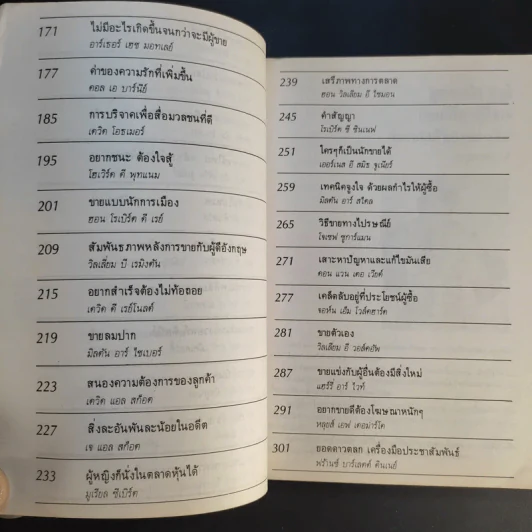 171 ไม่มีอะไรเกิดขึ้นจนกว่าจะมีผู้ขาย
อาร์เธอร์ เฮช มอทเลย์
177 ค่าของความรักที่เพิ่มขึ้น
คอล เอ บาร์นีย์
185 การบริจาคเพื่อสื่อมวลชนที่ดี
เดวิด โอธเมอร์
195 อยากชนะ ต้องใจสู้
โฮเวิร์ด ดี พุทแนม
201 ขายแบบนักการเมือง
ฮอน โรเบิร์ต ดี เรย์
209 สัมพันธภาพหลังการขายกับผู้ดีอังกฤษ
วิลเลี่ยม บี เรมิงตัน
215 อยากสำเร็จต้องไม่ท้อถอย
เดวิด ดี เรย์โนลด์
219 ขายลมปาก
มิลตัน อาร์ ไซเบอร์
223 สนองความต้องการของลูกค้า
เดวิด แอล สก๊อต
227 สิ่งละอันพันละน้อยในอดีต
เจ แอล สก๊อต
233 ผู้หญิงก็นั่งในตลาดหุ้นได้
มูเรียล ซีเบิร์ต
239 เสรีภาพทางการตลาด
ฮอน วิลเลียม อี ไซมอน
245 คำสัญญา
โรเบิร์ต ซี ซินเนฟ
251 ใครๆก็เป็นนักขายได้
เออร์เนส อี สมิธ จูเนียร์
259 เทคนิคจูงใจ ด้วยผลกำไรให้ผู้ซื้อ
มิลตัน อาร์ สไคล
265 วิธีขายทางไปรษณีย์
โจเซฟ ชูการ์แมน
271 เสาะหาปัญหาและแก้ไขมันเสีย
ดอน แวน เดอ เวียต์
277 เคล็ดลับอยู่ที่ประโยชน์ผู้ซื้อ
จอห์น เอ็ม โวล์คฮาร์ด
281 ขายตัวเอง
วิลเลียม อี วอล์คอัพ
287 ขายแข่งกับผู้อื่นต้องมีสิ่งใหม่
แฮร์รี่ อาร์ ไวท์
291 อยากขายดีต้องโฆษณาหนักๆ
หลุยส์ เอฟ เดอมาร์โค
301 ยอดดาวตลก เครื่องมือประชาสัมพันธ์
ฟรานซ์ บาร์เลตต์ คินเนย์